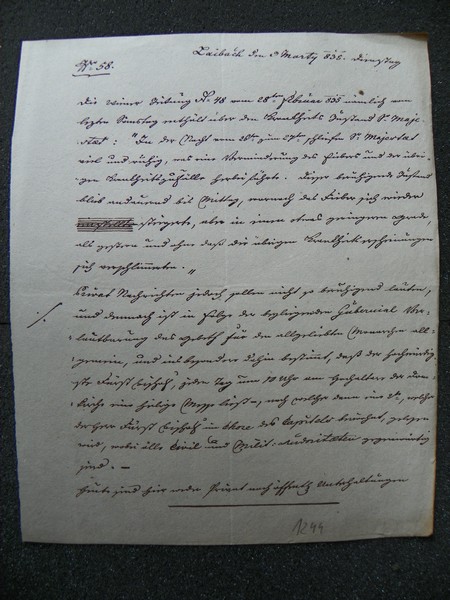 Nro 58.
Laibach den 3 Marty 835. Dienstag
Die Wiener Zeitung N. 48 vom 28ten Februar 835 nämlich vom
lezten Samstag enthält über den Krankheits Zustand Sr. Maje-
stät: "In der Nacht vom 26ten zum 27ten schliefen Sr. Majestät
viel und ruhig, was eine Verminderung des Fiebers und der übri-
gen Krankheitszufälle herbei führte. Dieser beruhigende Zustand
blieb andauernd bis Mittag, wornach das Fieber sich wieder
steigerte, aber in einem etwas geringeren Grade,
als gestern und ohne daß die übrigen Krankheitserscheinungen
sich verschlimmerten."
Privat Nachrichten jedoch sollen nicht so beruhigend lauten,
und demnach ist in Folge der beyliegenden Gubernial Ver-
lautbarung das Gebeth für den allgeliebten Monarchen all-
gemein, und insbesondere dahin bestimmt, daß der hochwürdig-
ste Fürst Bischof, jeden Tag um 10 Uhr am Hochaltare der Dom-
kirche eine heilige Messe lese, nach welcher dann ein welche
der Herr Fürst Bischof in Chore des Capitels gelesen
wird, wobei alle Civil und Milit. Autoritäten gegenwärtig
sind. –
Heute sind hier weder Privat noch öffentl. Unterhaltungen
1244